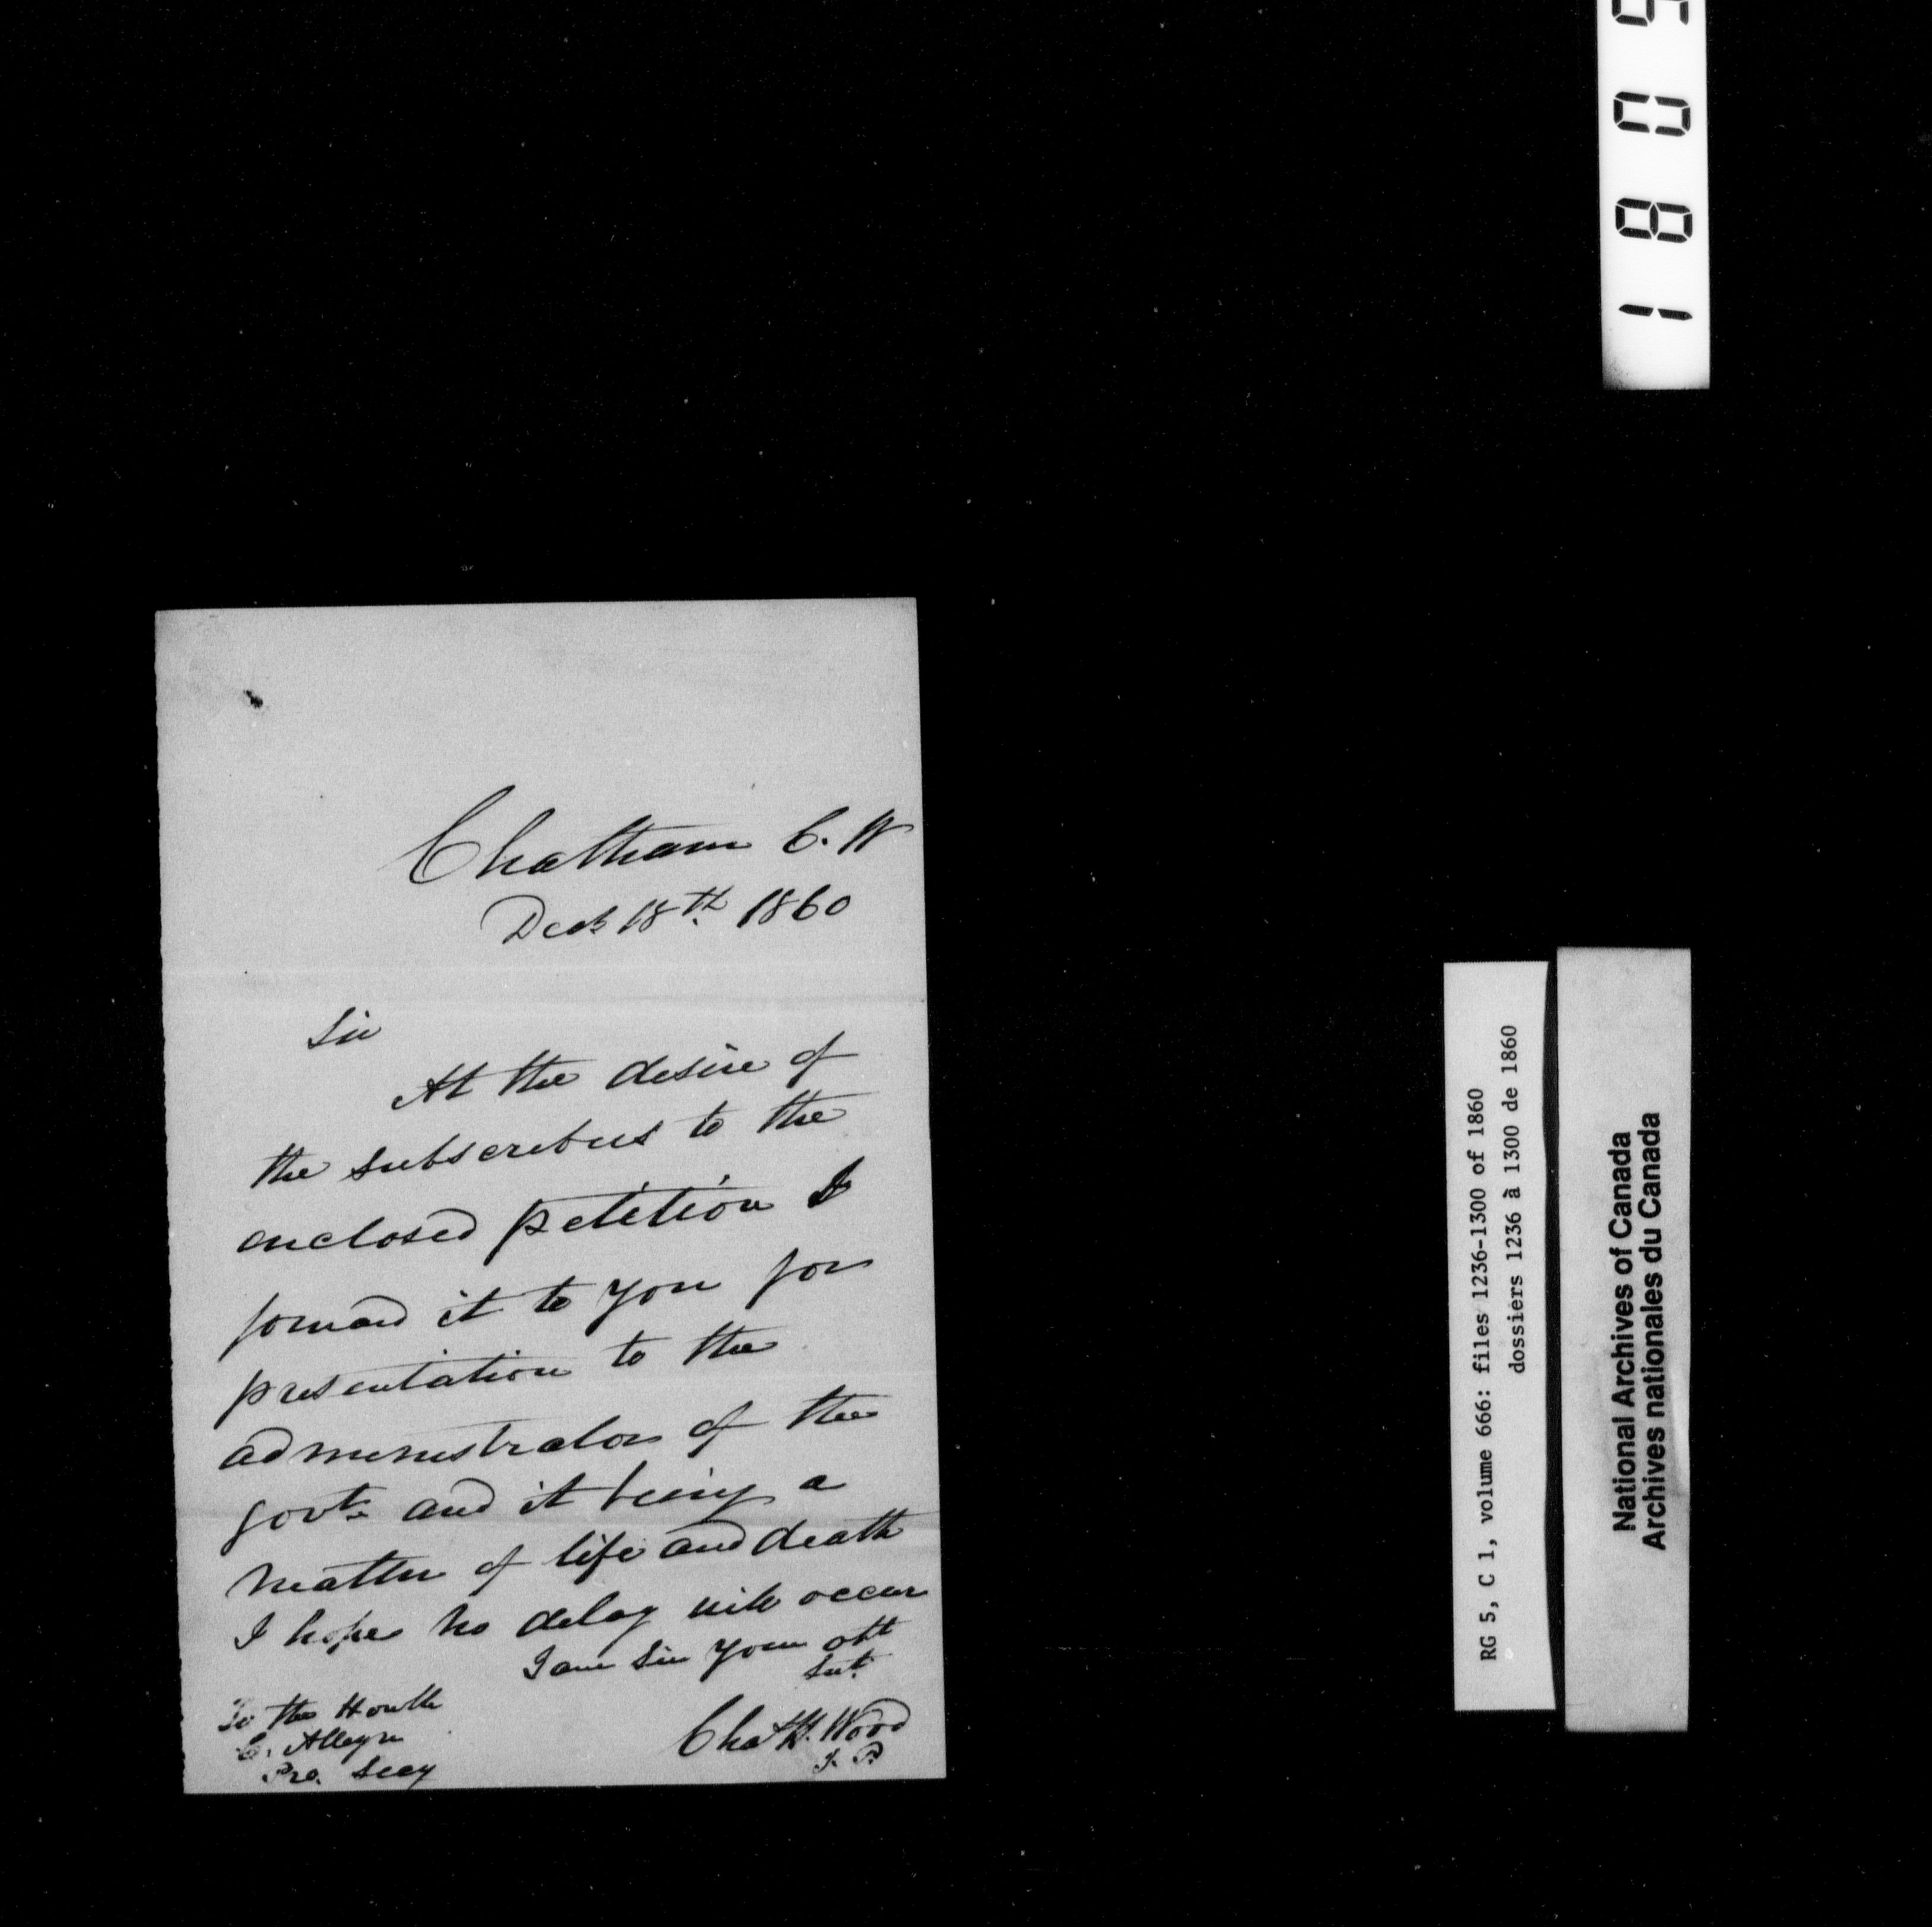 Chatham C. W
Decb 18th 1860
Sir
At the desire of
the subscribers to the
enclosed petition I
forward it to you for
presentation to the
administrator of the
govt. and it being a
matter of life and death
I hope no delay will occur
I am Sir Your obt
Sert.
To the Honble
C. Alleyn
Pro. Secy
Wood
J. P.
1 8 0 5
RG 5, C 1, volume 666: files 1236-1300 of 1860
dossiers 1236 à 1300 de 1860
National Archives of Canada
Archives nationales du Canada